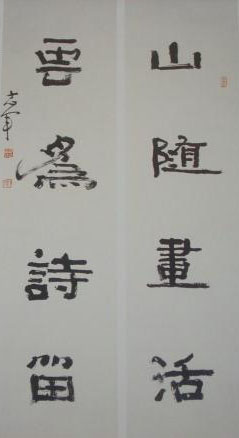 山隨畫活
雲為詩留
志軍